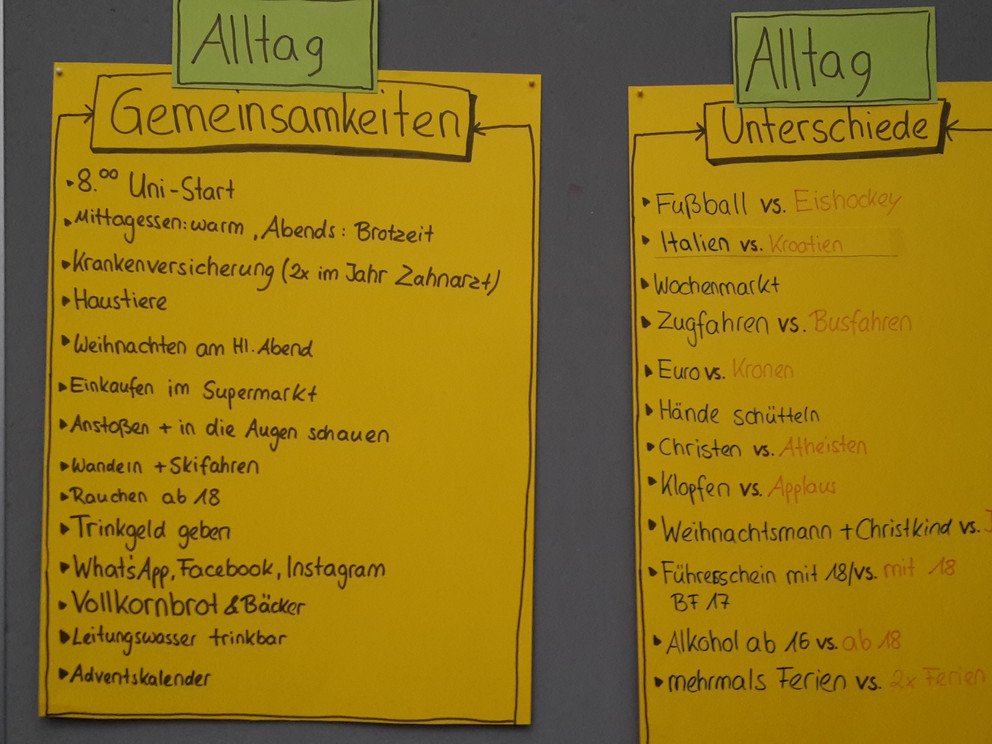 Alltag
Gemeinsamkeiten
8.⁰⁰ Uni-Start
Mittagessen: warm, Abends: Brotzeit
Krankenversicherung (2x im Jahr Zahnarzt)
Haustiere
Weihnachten am Hl. Abend
Einkaufen im Supermarkt
Anstoßen + in die Augen schauen
Wandern + Skifahren
Rauchen ab 18
Trinkgeld geben
WhatsApp, Facebook, Instagram
Vollkornbrot & Bäcker
Leitungswasser trinkbar
Adventskalender
Alltag
Unterschiede
Fußball vs. Eishockey
Italien vs. Kroatien
Wochenmarkt
Zugfahren vs. Busfahren
Euro vs. Kronen
Hände schütteln
Christen vs. Atheisten
Klopfen vs. Applaus
Weihnachtsmann + Christkind vs.
Führerschein mit 18/vs. mit 18
BF 17
Alkohol ab 16 vs. ab 18
mehrmals Ferien vs. 2x Ferien